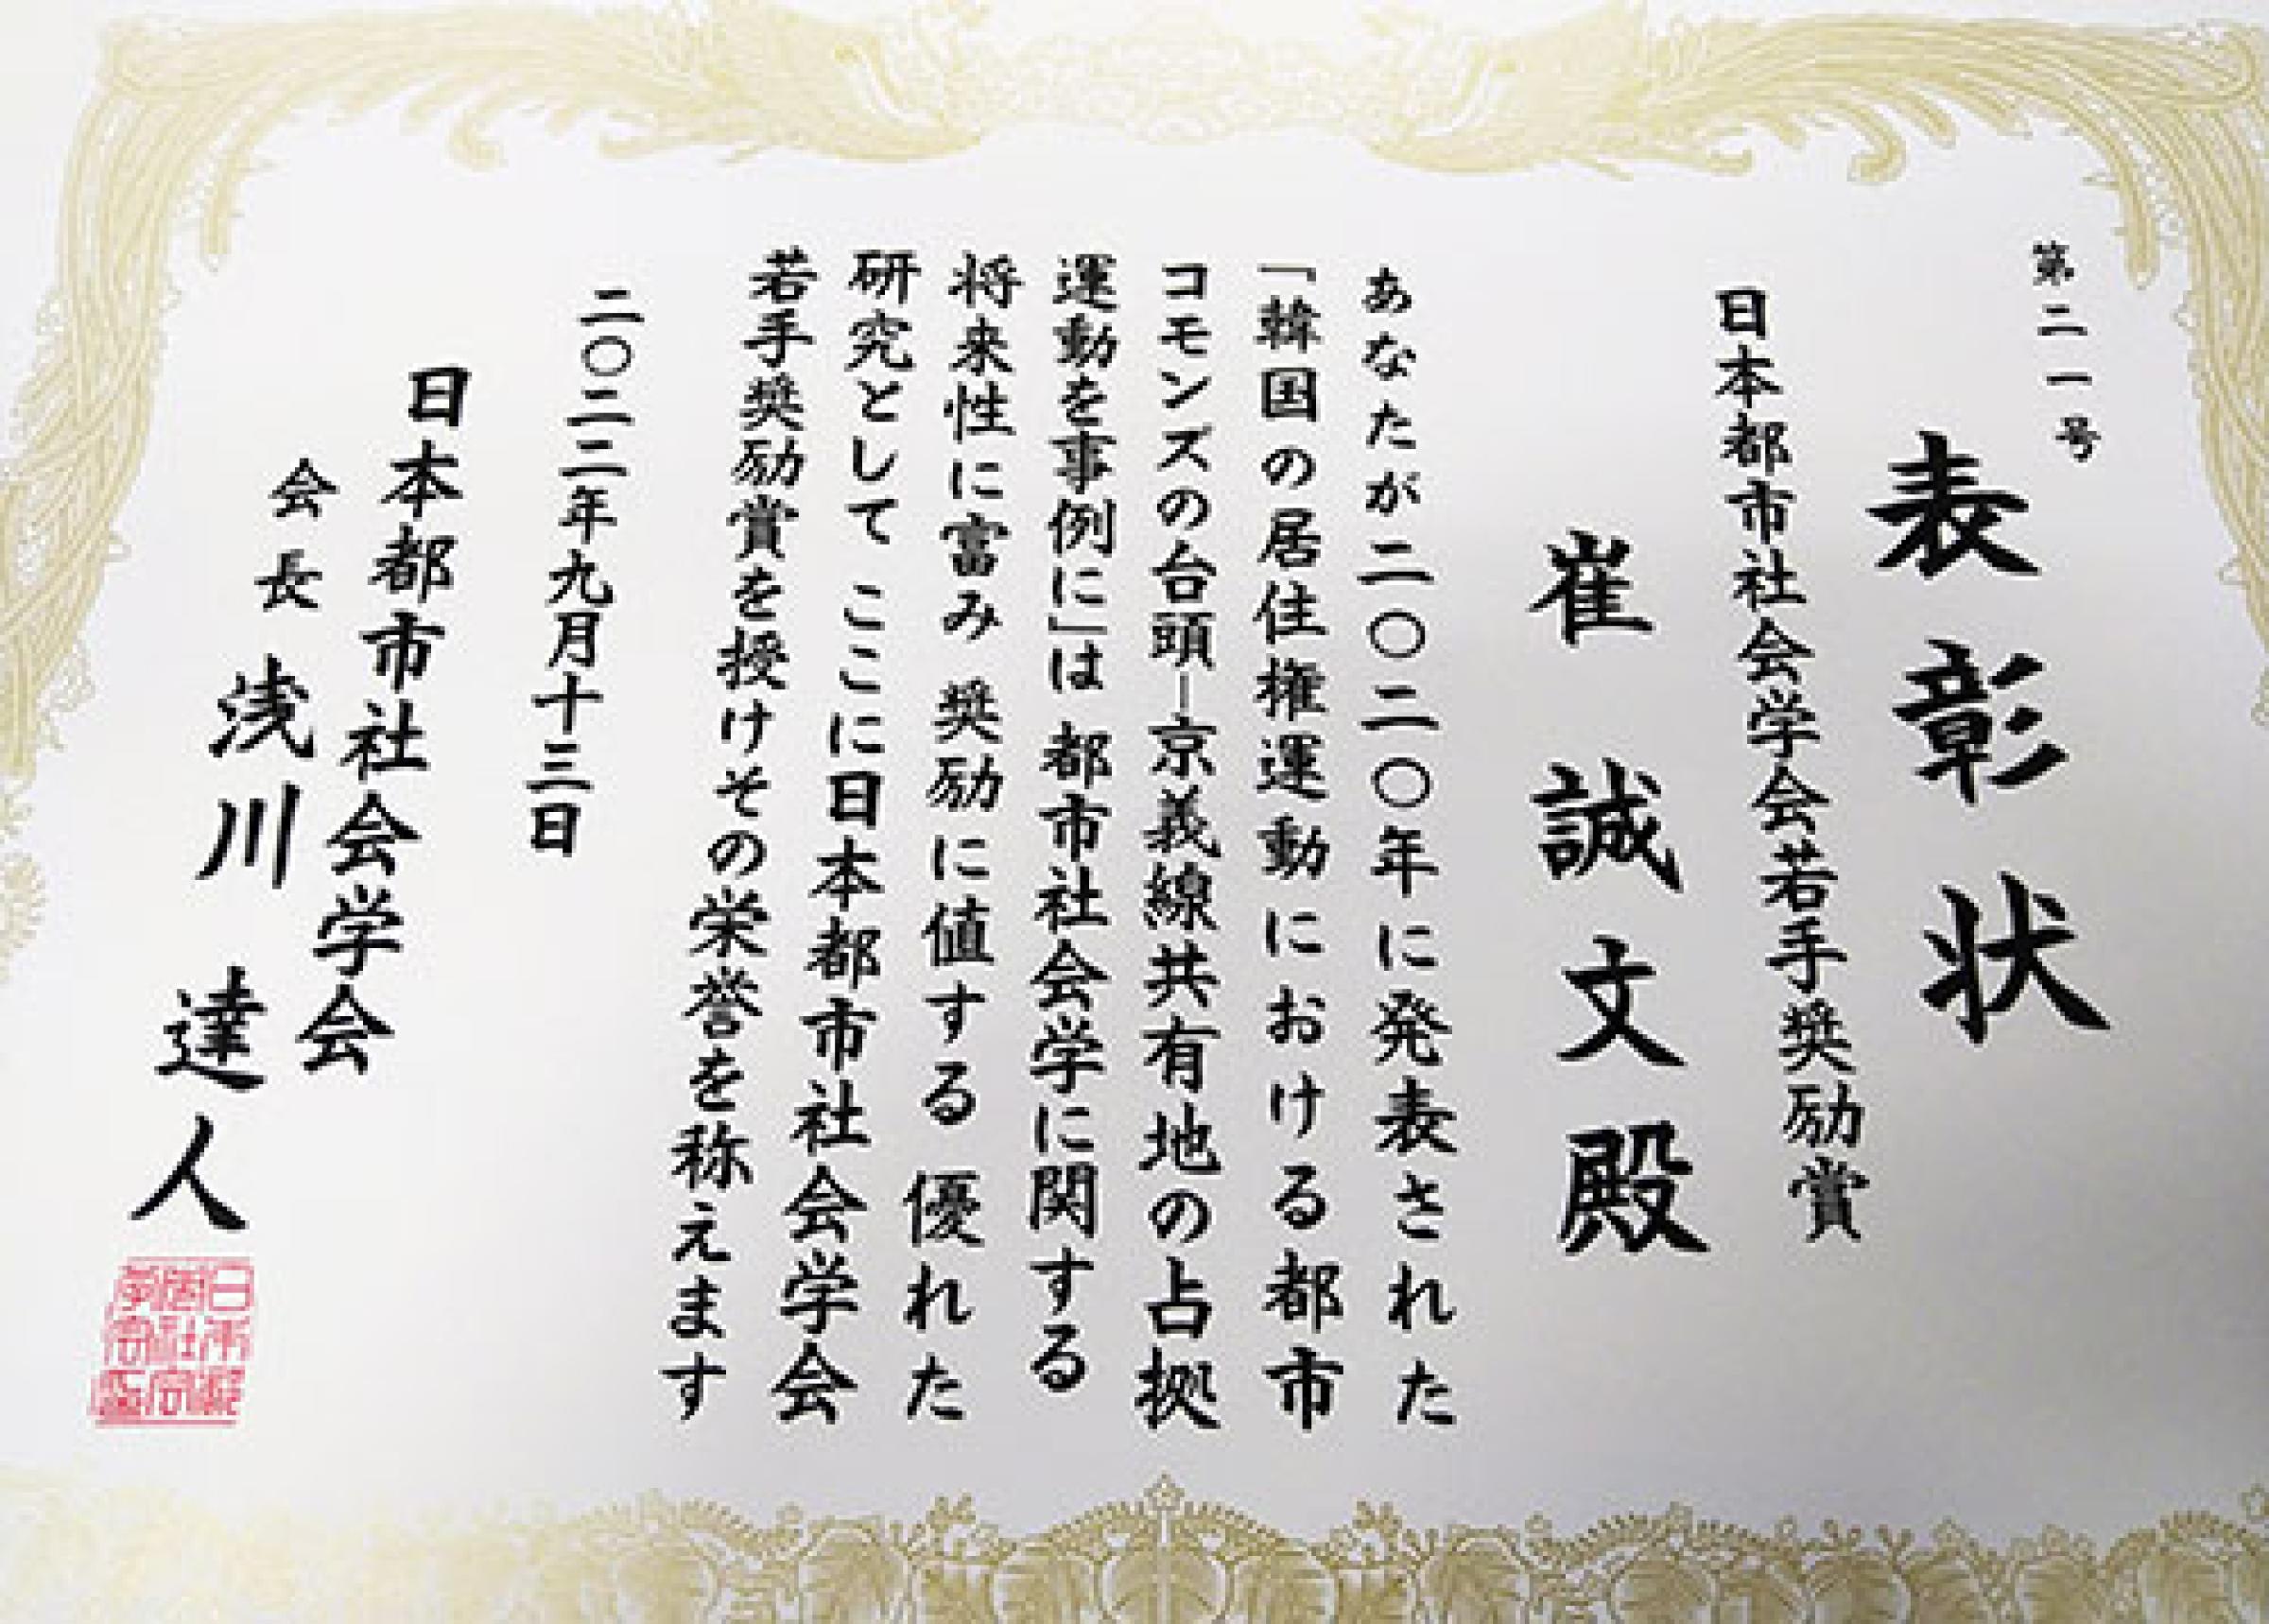 第二一号
表彰状
日本都市社会学会若手奨励賞
崔誠文殿
あなたが二〇二〇年に発表された
「韓国の居住権運動における都市
コモンズの台頭―京義線共有地の占拠
運動を事例に」は 都市社会学に関する
将来性に富み 奨励に値する 優れた
研究として ここに日本都市社会学会
若手奨励賞を授けその栄誉を称えます
二〇二二年九月十三日
日本都市社会学会
会長 浅川 達人